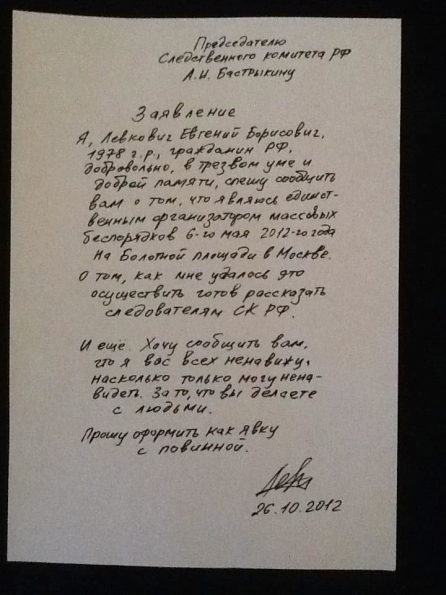 Председателю
Следственного комитета РФ
А.И. Бастрыкину
Заявление
Я, Левкович Евгений Борисович,
1978 г.р., гражданин РФ,
добровольно, в трезвом уме и
доброй памяти, спешу сообщить
вам о том, что являюсь единст-
венным организатором массовых
беспорядков 6-го мая 2012-го года
на Болотной площади в Москве.
О том, как мне удалось это
осуществить готов рассказать
следователям СК РФ.
И ещё. Хочу сообщить вам,
что я вас всех ненавижу,
насколько только могу нена-
видеть. За то, что вы делаете
с людьми.
Прошу оформить как явку
с повинной.
26.10.2012